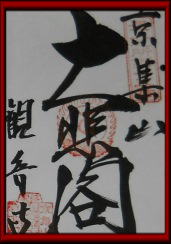 京集山
大悲閣
観音寺